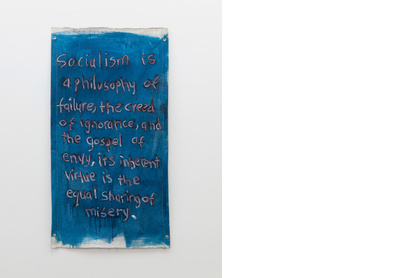 Socialism is
a philosophy of
failure, the creed
of ignorance, and
the gospel of
envy, its inherent
virtue is the
equal sharing of
misery.